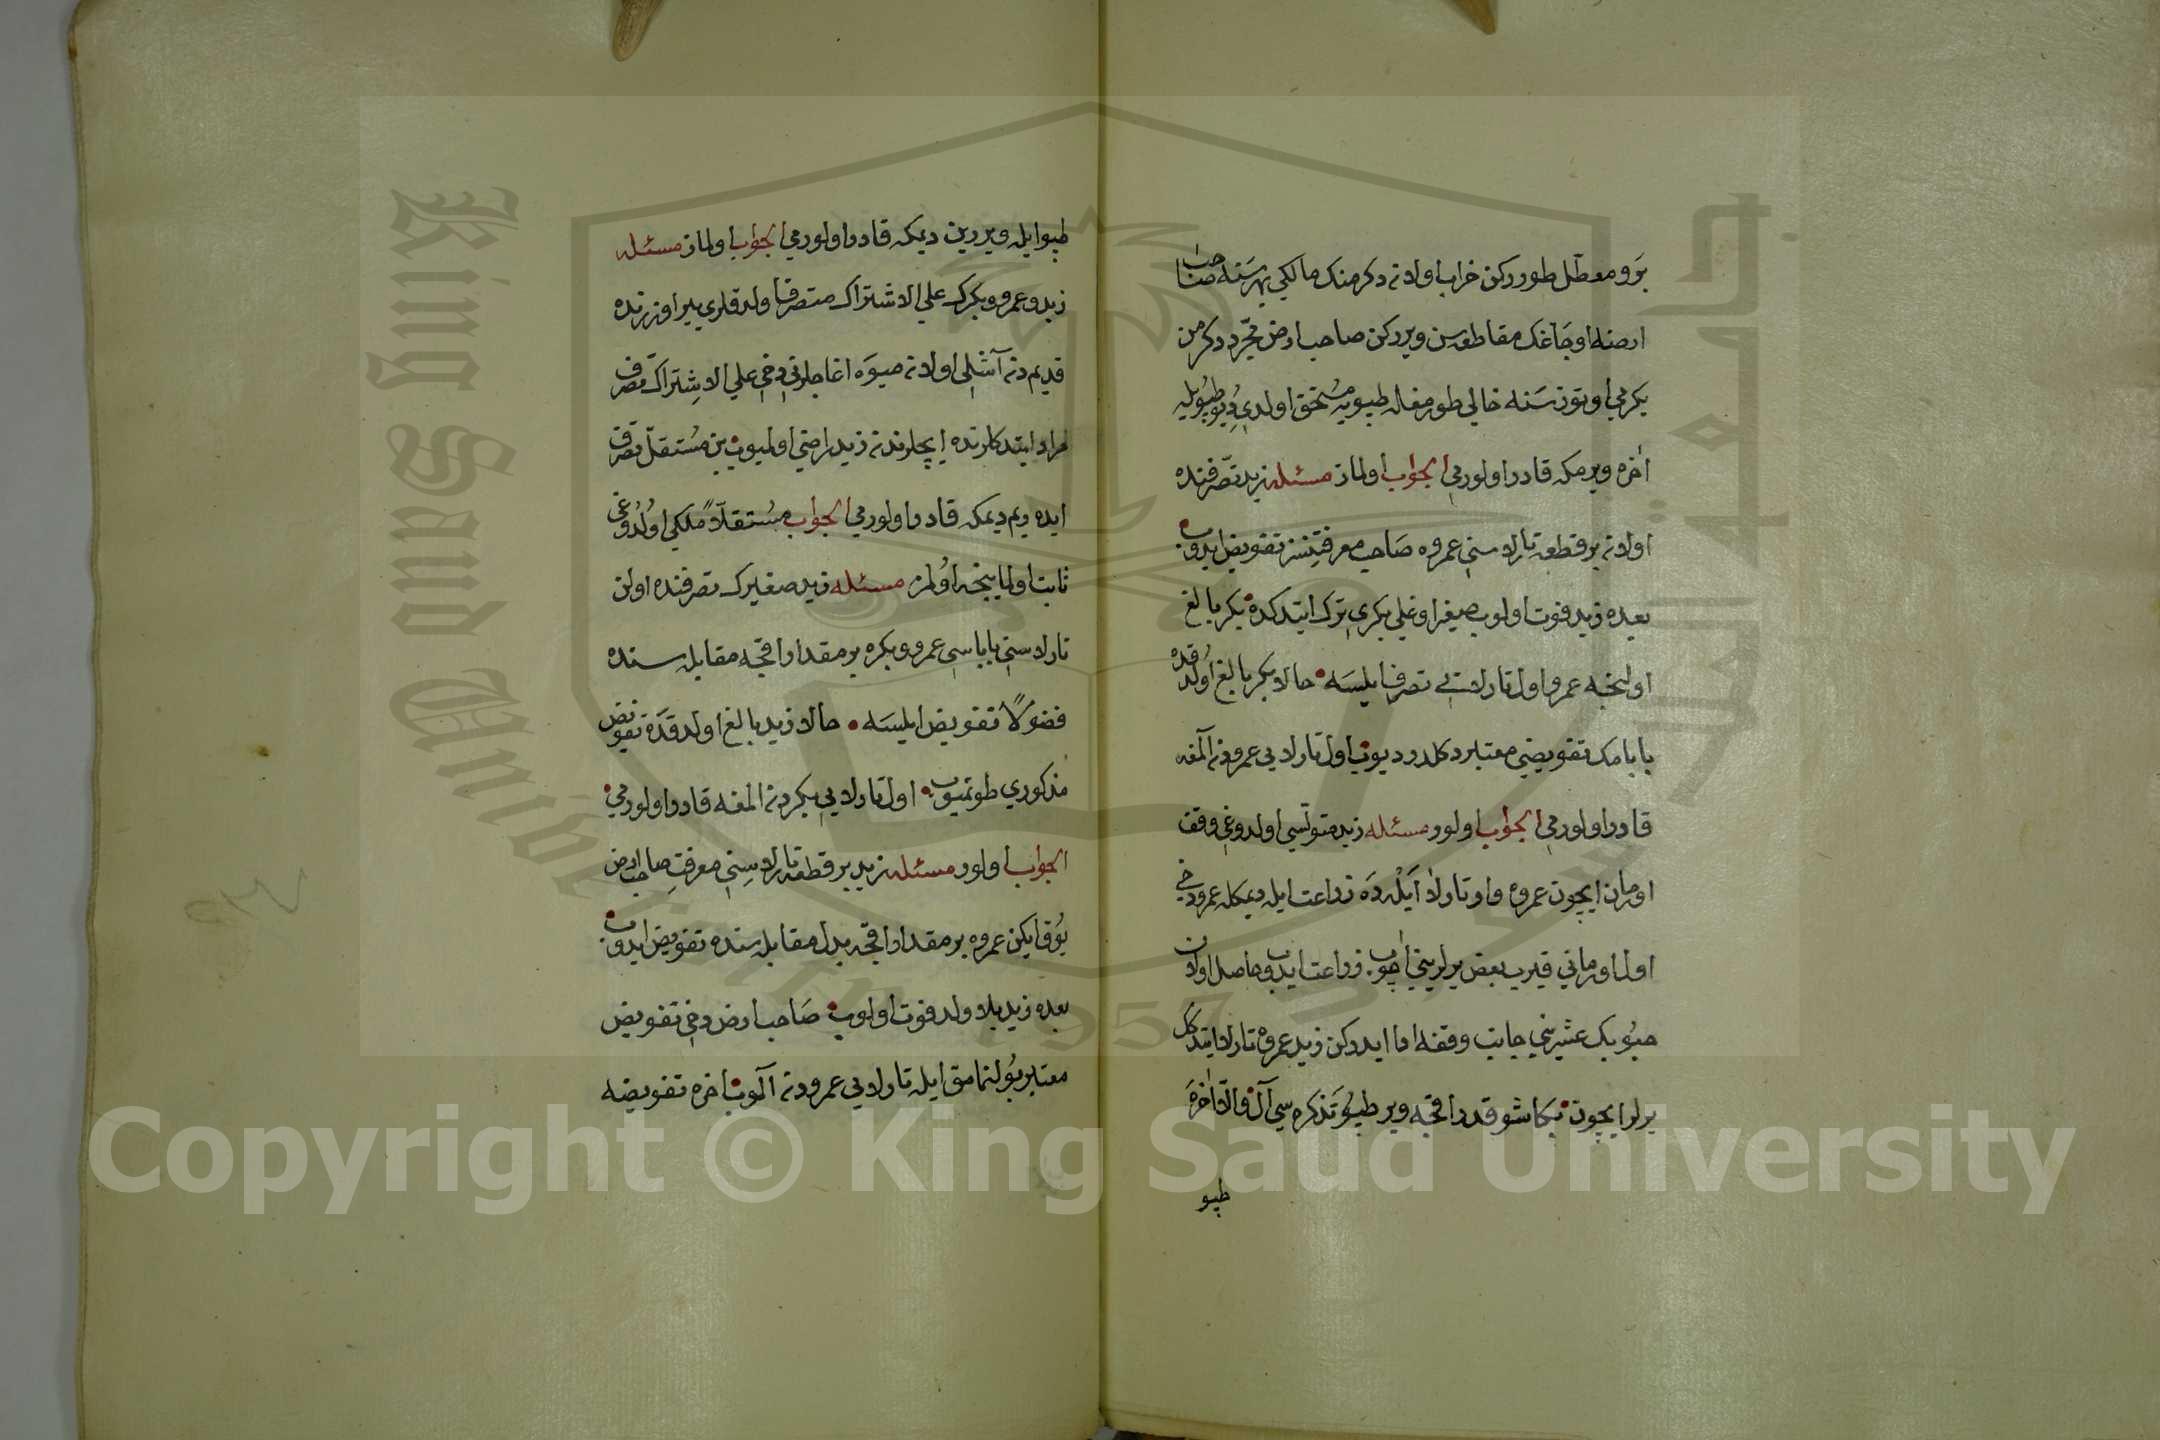 برو معطل طوررکن خراب اولان دکرمنک مالکی بهر سنه صاحب
ارضه اوجاغک مقاطعه سن ویررکن صاحب ارض مجرد دکرمن
یکرمی اوتوز سنه خالی طورمغله طپویه مستحق اولدی دیو طپو ایله
اخره ویرمکه قادر اولورمی الجواب اولماز مسئله زید تصرفنده
اولان بر قطعه تارلاسنی عمروه صاحب معرفتنسز تفویض ایدوب
بعده زید فوت اولوب صغیر اوغلی بکری ترک ایتدکده بکر بالغ
اولنجه عمرو اول تارلایی تصرف ایلیسه حالا بکر بالغ اولدقده
بابامک تفویضی معتبر دکلدر دیوب اول تارلایی عمرودن المغه
قادر اولورمی الجواب اولور مسئله زید متولسی اولدوغی وقف
اورمان ایچون عمروه وار تارلا ایله ده زراعت ایله دیمکله عمرو دخی
اول اورمانی قیروب بعض یرلرینی اچوب زراعت ایدوب حاصل اولان
حبوبک عشرینی جانب وقفه ادا ایدرکن زید عمروه تارلا ایتدکک
یرلر ایچون بکا شو قدر اقچه ویر طپو تذکره سی آل والا اخره
طپو
طپو ایله ویررین دیمکه قادر اولورمی الجواب اولماز مسئله
زید و عمرو و بکرک علی الاشتراک متصرف اولدقلری یر اوزرنده
قدیمدن آشلی اولان میوه اغاجلرنی دخی علی الاشتراک تصرف
مراد ایتدکلرنده ایچلرندن زید راضی اولمیوب بن مستقل تصرف
ایده ریم دیمکه قادر اولورمی الجواب مستقلاً ملکی اولدوغی
ثابت اولماینجه اولمز مسئله زید صغیرک تصرفنده اولن
تارلاسنی باباسی عمرو و بکره بر مقدار اقچه مقابله سنده
فضولاً تفویض ایلیسه حالا زید بالغ اولدقده تفویض
مذکوری طوتمیوب اول تارلایی بکردن المغه قادر اولورمی
الجواب اولور مسئله زید بر قطعه تارلاسنی معرفت صاحب ارض
یوق ایکن عمروه بر مقدار اقچه بدل مقابله سنده تفویض ایدوب
بعده زید بلا ولد فوت اولوب صاحب ارض دخی تفویض
معتبر بولنمامق ایله تارلایی عمرودن آلوب اخره تفویضه
King Saud University
1957
Copyright © King Saud University